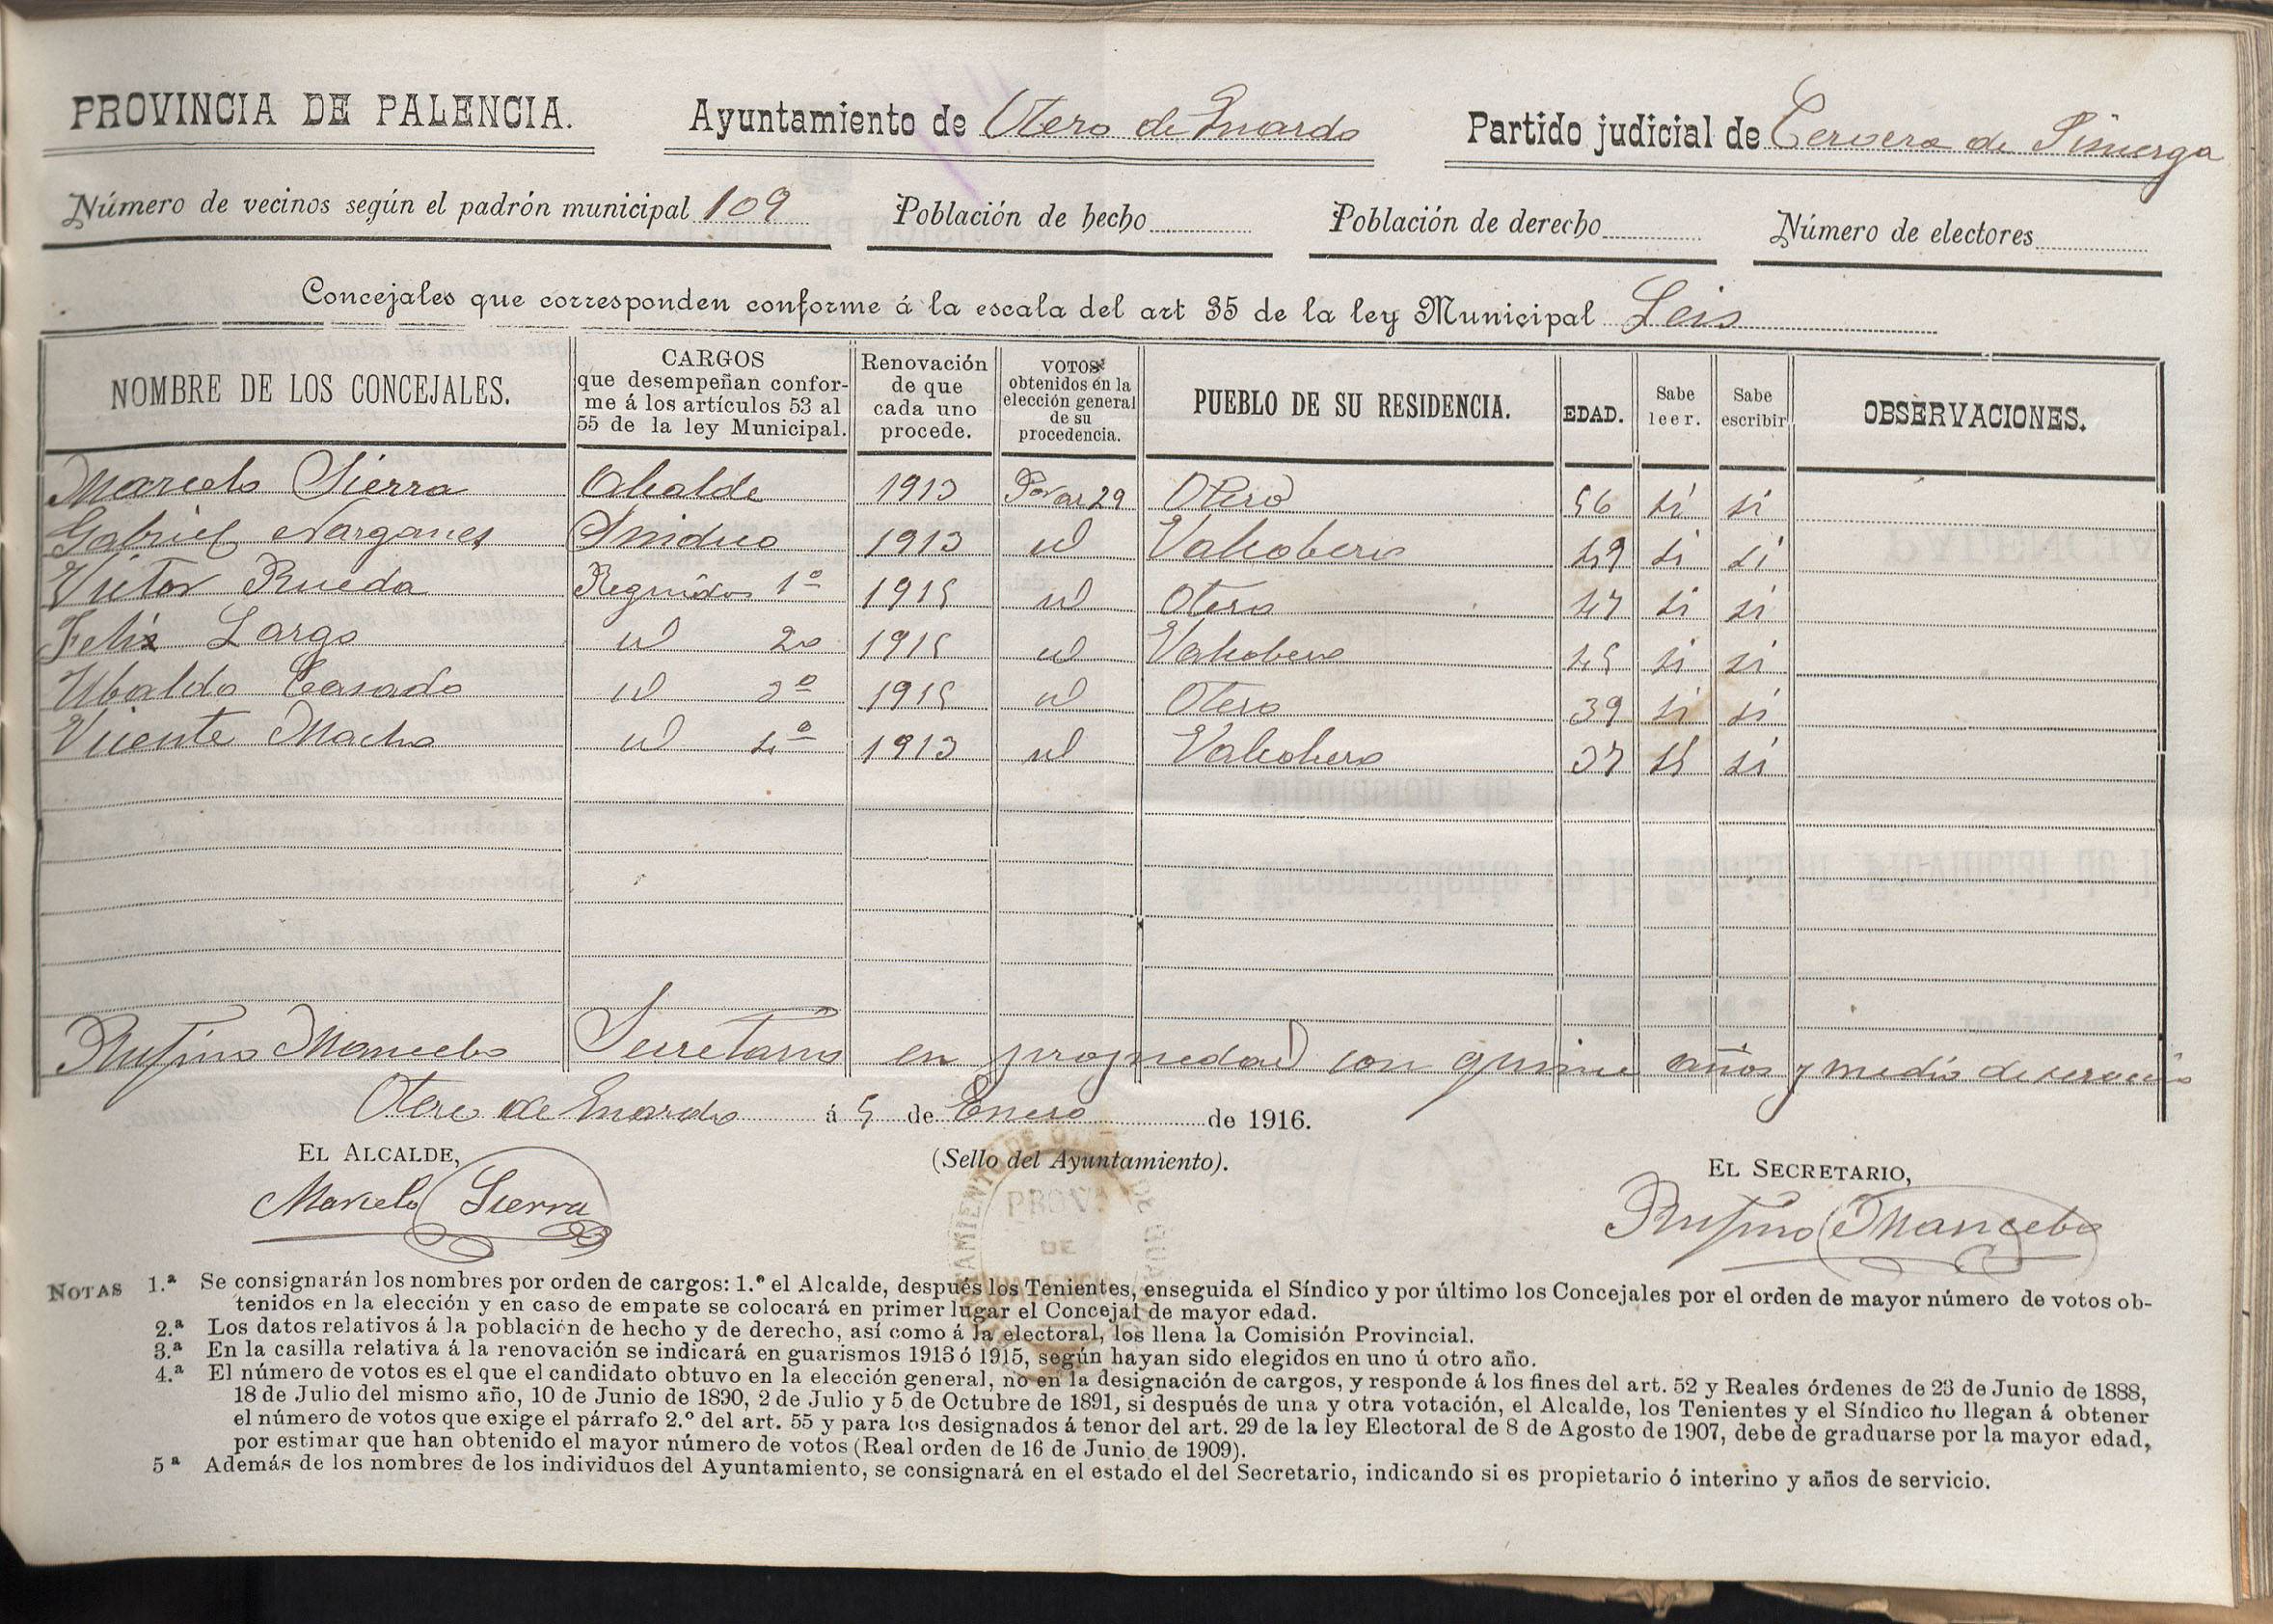 PROVINCIA DE PALENCIA. Ayuntamiento de Otero de Guardo Partido judicial de Cervera de Pisuerga
Número de vecinos según el padrón municipal 109 Población de hecho Población de derecho Número de electores
Concejales que corresponden conforme á la escala del art 35 de la ley Municipal Seis
NOMBRE DE LOS CONCEJALES. CARGOS que desempeñan conforme á los artículos 53 al 55 de la ley Municipal. Renovación de que cada uno procede. VOTOS obtenidos en la elección general de su procedencia. PUEBLO DE SU RESIDENCIA. EDAD. Sabe leer. Sabe escribir OBSERVACIONES.
Marcelo Sierra Alcalde 1913 Por ar 29 Otero 56 si si
Gabriel Narganes Sindico 1913 id Valcobero 49 si si
Victor Rueda Regidor 1º 1915 id Otero 47 si si
Felix Largo id 2º 1915 id Valcobero 45 si si
Ubaldo Casado id 3º 1915 id Otero 39 si si
Vicente Macho id 4º 1913 id Valcobero 37 si si
Rufino Mancebo Secretario en propiedad con quince años y medio de servicio
Otero de Guardo á 5 de Enero de 1916.
EL ALCALDE, (Sello del Ayuntamiento). EL SECRETARIO,
Marcelo Sierra Rufino Mancebo
PROVA
DE
NOTAS 1.ª Se consignarán los nombres por orden de cargos: 1.º el Alcalde, después los Tenientes, enseguida el Síndico y por último los Concejales por el orden de mayor número de votos ob-
tenidos en la elección y en caso de empate se colocará en primer lugar el Concejal de mayor edad.
2.ª Los datos relativos á la población de hecho y de derecho, así como á la electoral, los llena la Comisión Provincial.
3.ª En la casilla relativa á la renovación se indicará en guarismos 1913 ó 1915, según hayan sido elegidos en uno ú otro año.
4.ª El número de votos es el que el candidato obtuvo en la elección general, no en la designación de cargos, y responde á los fines del art. 52 y Reales órdenes de 23 de Junio de 1888,
18 de Julio del mismo año, 10 de Junio de 1890, 2 de Julio y 5 de Octubre de 1891, si después de una y otra votación, el Alcalde, los Tenientes y el Síndico no llegan á obtener
el número de votos que exige el párrafo 2.º del art. 55 y para los designados á tenor del art. 29 de la ley Electoral de 8 de Agosto de 1907, debe de graduarse por la mayor edad,
por estimar que han obtenido el mayor número de votos (Real orden de 16 de Junio de 1909).
5ª Además de los nombres de los individuos del Ayuntamiento, se consignará en el estado el del Secretario, indicando si es propietario ó interino y años de servicio.